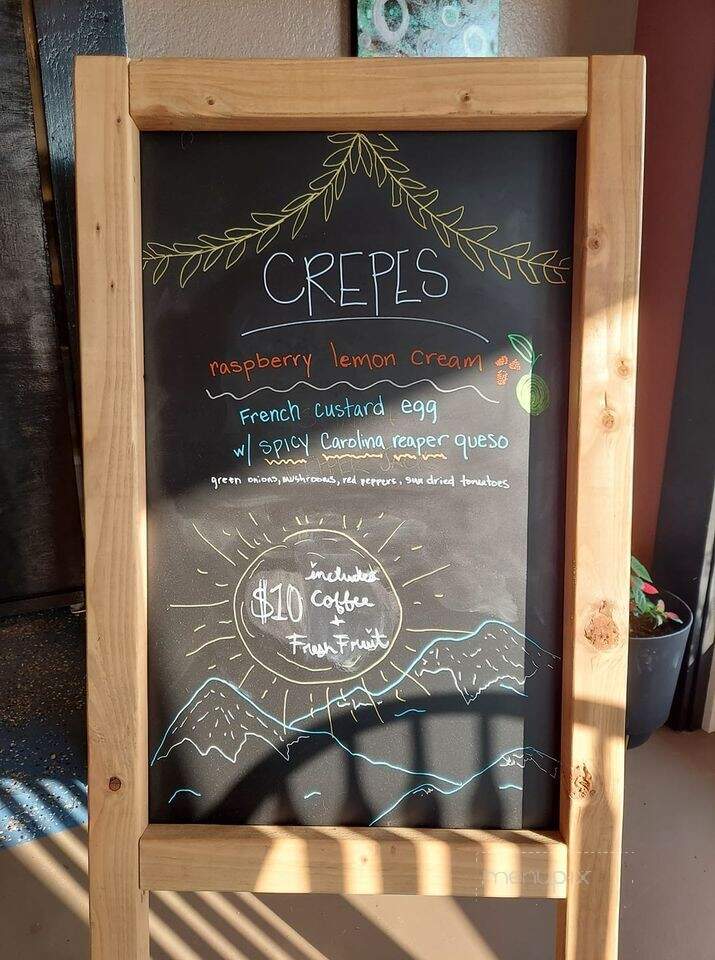 CREPES
raspberry lemon cream
French custard egg
w/ spicy Carolina reaper queso
green onions, mushrooms, red peppers, sun dried tomatoes
$10 includes
Coffee
+
Fresh Fruit
menupix